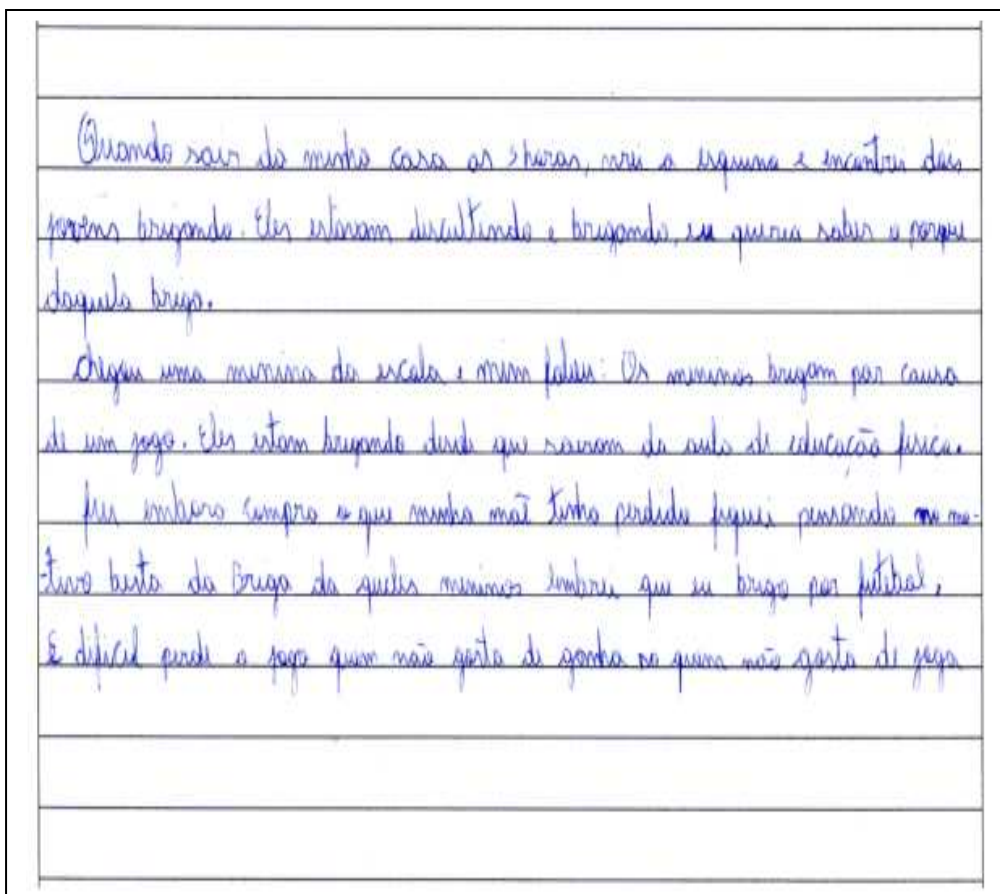 Quando sair da minha casa as 5horas, virei a esquina e encontrei dois
jovens brigando. Eles estavam discultindo e brigando, eu queria saber o porque
daquela briga.
Chegou uma minina da escola e mim falou: Os meninos brigam por causa
de um jogo. Eles estam brigando desde que sairam da aula de educação fisica.
fui embora compra o que minha mãe tinha perdido fiquei pensando no mo-
tivo besta da Briga da queles meninos lembrei que eu brigo por futebol,
É dificil perde o jogo quem não gosta de ganha so quem não gosta de joga